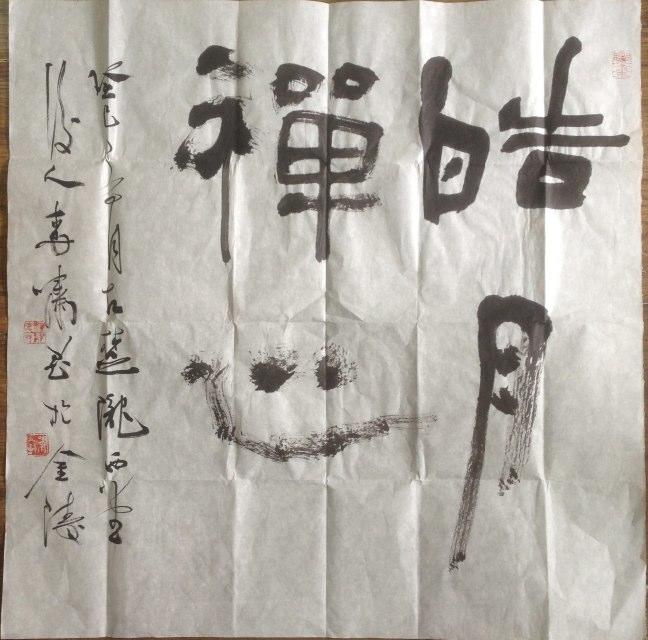 皓月
禪心
癸巳年月古燕隴西堂
後人嘯書於金陵